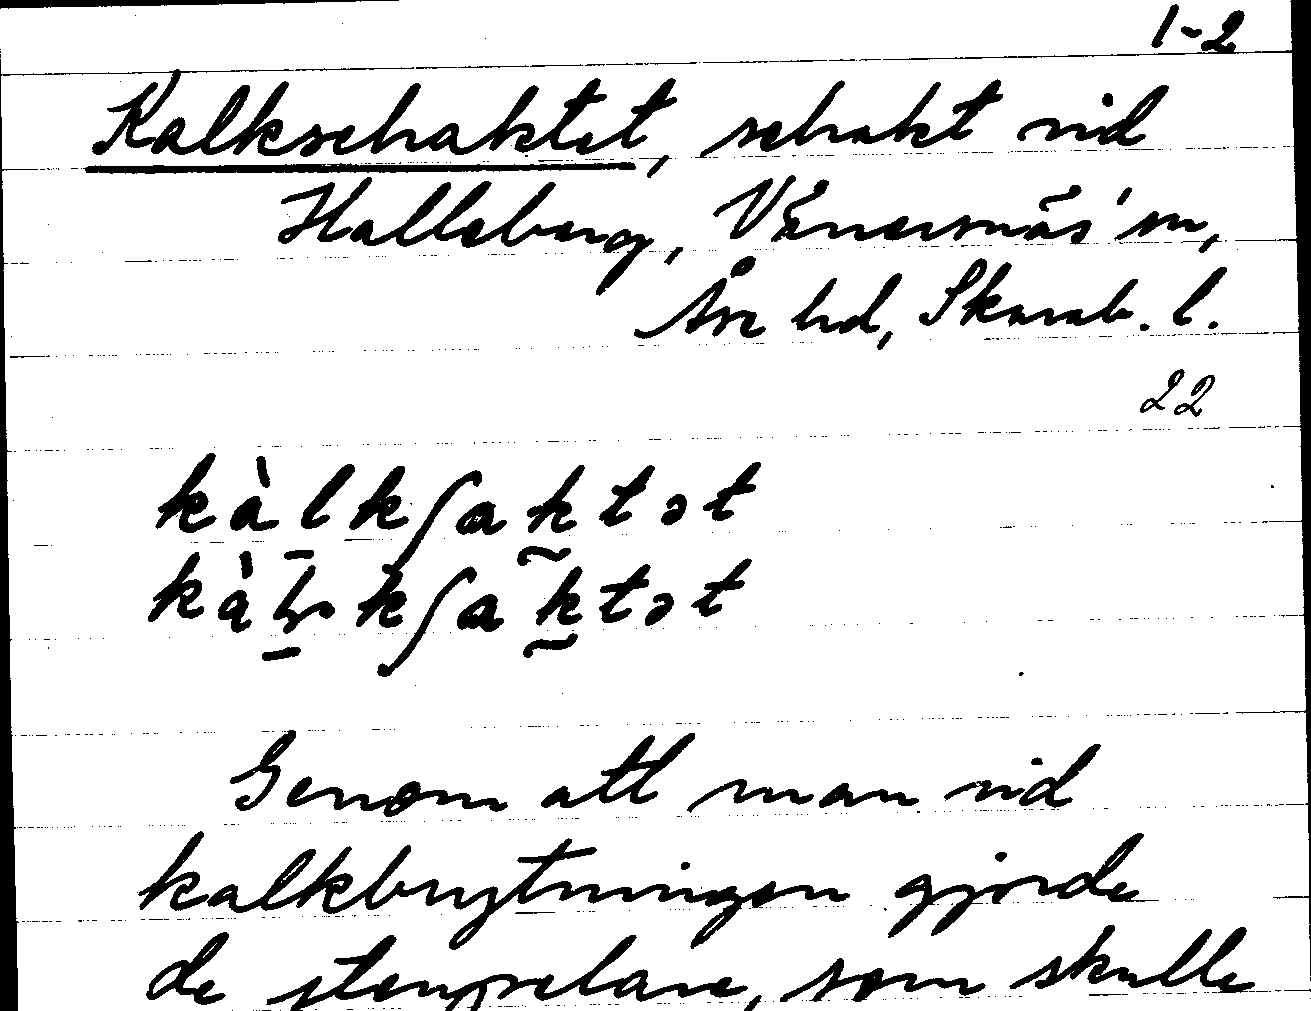 1-2
Kalkschaktet, schakt vid
Halleberg, Vänersnäs' sn,
Åse hd, Skarab. l.
22
kàlkʃaktət
kàɫkʃaktət
Genom att man vid
kalkbrytningen gjorde
de stenpelare, som skulle